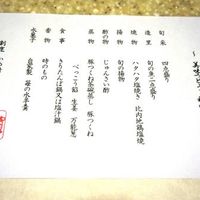 旬菜　四点盛り
造里　旬の魚二点盛り
焼物　ハタハタ塩焼き　比内地鶏塩焼
揚物　旬の揚物
酢の物　じゅんさい酢
蒸物　豚つくね茶碗蒸し　豚つくね
べっこう餡　生姜　万能葱
食事　きりたんぽ鍋又は塩汁鍋
香物　時のもの
水菓子　自家製　苺の水羊羹